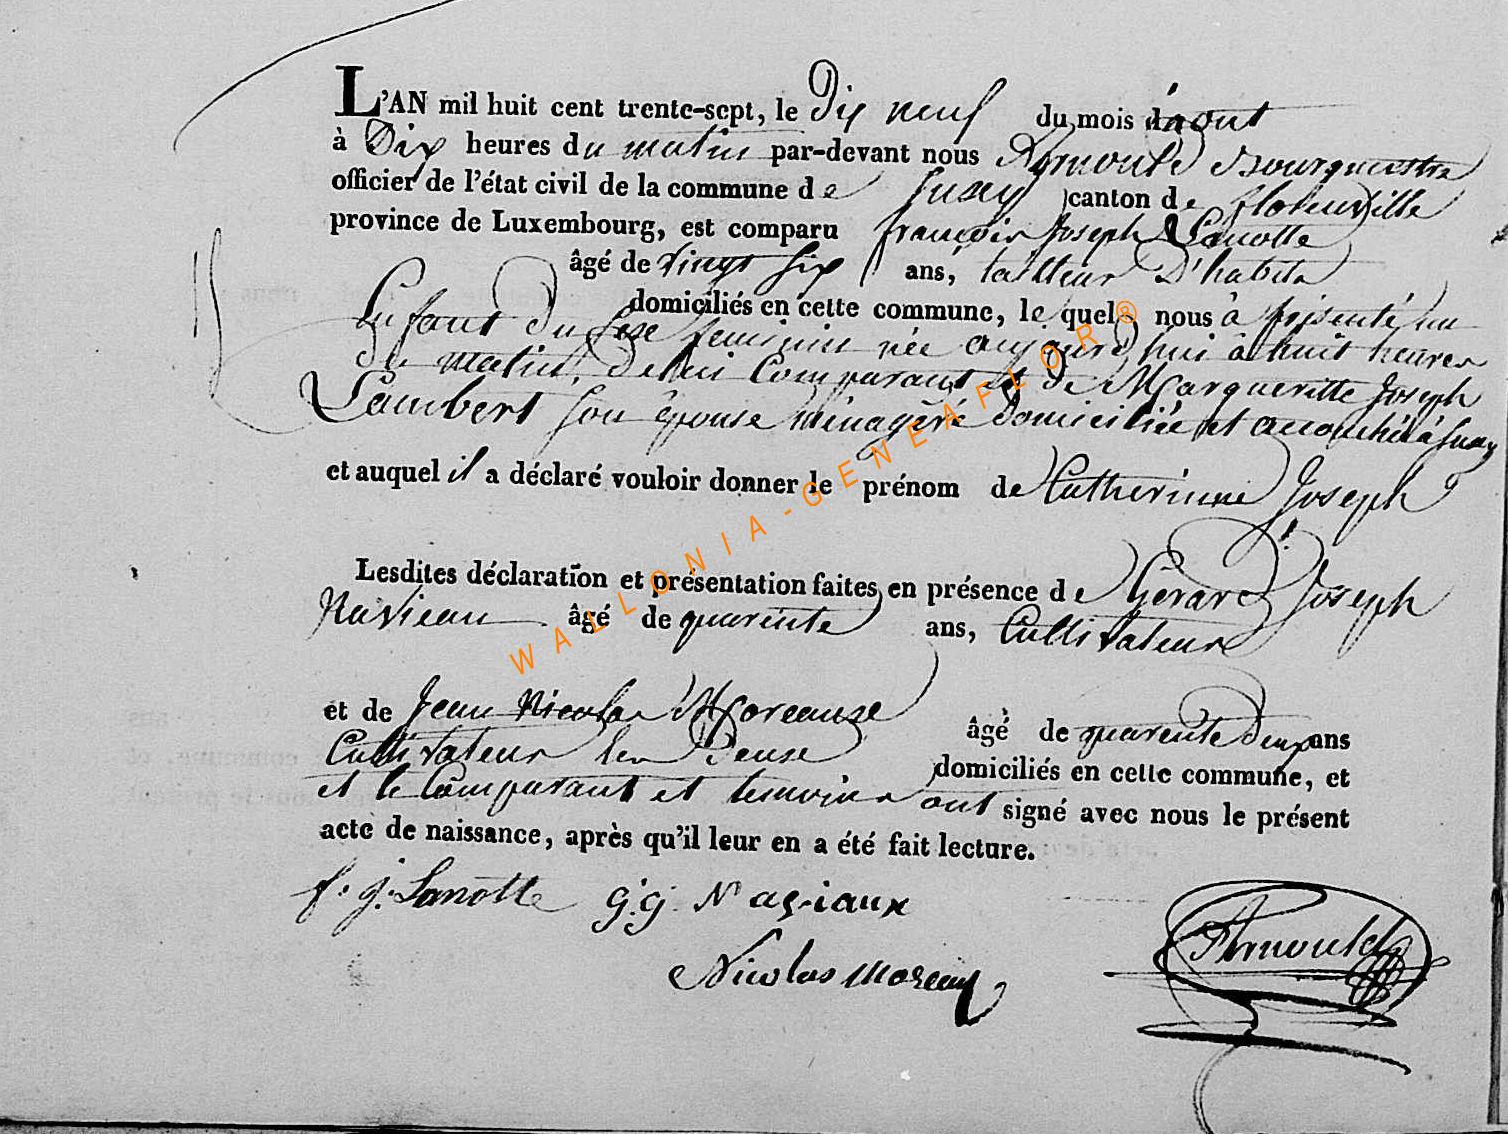 L'AN mil huit cent trente-sept, le Dix neuf du mois d'aout
à Dix heures du matin par-devant nous Arnould Bourguestre
officier de l'état civil de la commune de Suxy canton de florenville
province de Luxembourg, est comparu francois Joseph Lanotte
âgé de vingt six ans, tailleur D'habits
domiciliés en cette commune, le quel nous à présenté un
Enfant du sexe feminin née aujourd'hui à huit heures
du matin, de lui Comparant et de Margueritte Joseph
Lambert son épouse ménagère domiciliée et accouchéé à Suxy
et auquel il a déclaré vouloir donner le prénom de Catherinne Joseph
Lesdites déclaration et présentation faites en présence de Gérard Joseph
Navieau âgé de quarente ans, Cultivateur
et de Jean Nicolas Moreause âgé de quarente Deux ans
Cultivateur les Deuse domiciliés en cette commune, et
et le Comparant et temoins ont signé avec nous le présent
acte de naissance, après qu'il leur en a été fait lecture.
f. j. Lanotte g.j. Naviaux
Nicolas Moreau
Arnould
WALLONIA-GENEAFLOR®